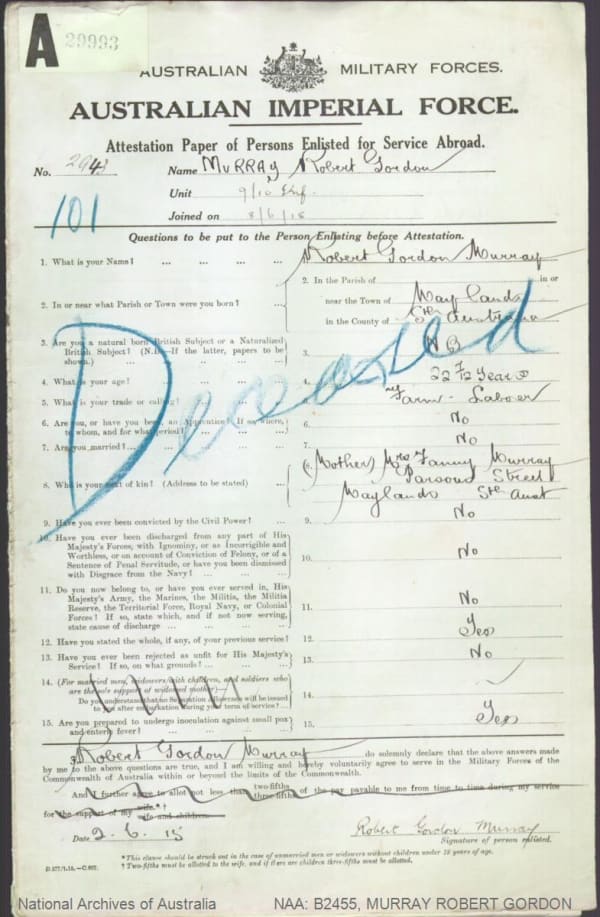 A 29993
AUSTRALIAN MILITARY FORCES.
AUSTRALIAN IMPERIAL FORCE.
Attestation Paper of Persons Enlisted for Service Abroad.
No. 2943 Name MURRAY Robert Gordon
Unit 9/10 Inf.
Joined on 8/6/15
101
Questions to be put to the Person Enlisting before Attestation.
1. What is your Name? ... ... ... ... Robert Gordon Murray
2. In or near what Parish or Town were you born? ... 2. In the Parish of in or
near the Town of Maylands
in the County of Sth Australia
3. Are you a natural born British Subject or a Naturalized British Subject? (N.B.—If the latter, papers to be shown.) ... 3. NB
4. What is your age? ... 4. 22 7/12 Years
5. What is your trade or calling? ... 5. Farm-Laborer
6. Are you, or have you been, an Apprentice? If so, where, to whom, and for what period? ... 6. No
7. Are you married? ... 7. No
8. Who is your next of kin? (Address to be stated) ... 8. (Mother) Mrs Fanny Murray
Parsons Street
Maylands Sth Aust
Deceased
9. Have you ever been convicted by the Civil Power? ... 9. No
10. Have you ever been discharged from any part of His Majesty's Forces, with Ignominy, or as Incorrigible and Worthless, or on account of Conviction of Felony, or of a Sentence of Penal Servitude, or have you been dismissed with Disgrace from the Navy? ... 10. No
11. Do you now belong to, or have you ever served in, His Majesty's Army, the Marines, the Militia, the Militia Reserve, the Territorial Force, Royal Navy, or Colonial Forces? If so, state which, and if not now serving, state cause of discharge ... 11. No
12. Have you stated the whole, if any, of your previous service? 12. Yes
13. Have you ever been rejected as unfit for His Majesty's Service? If so, on what grounds? ... 13. No
14. (For married men, widowers with children, and soldiers who are the sole support of widowed mother)—
Do you understand that no Separation Allowance will be issued to you after embarkation during your term of service? ... 14.
15. Are you prepared to undergo inoculation against small pox and enteric fever? ... 15. Yes
I, Robert Gordon Murray do solemnly declare that the above answers made
by me to the above questions are true, and I am willing and hereby voluntarily agree to serve in the Military Forces of the
Commonwealth of Australia within or beyond the limits of the Commonwealth.
And I further agree to allot not less than two-fifths three-fifths of the pay payable to me from time to time during my service
for the support of my wife.*† wife and children
Date 2.6.15 Robert Gordon Murray
Signature of person enlisted.
*This clause should be struck out in the case of unmarried men or widowers without children under 18 years of age.
† Two-fifths must be allotted to the wife, and if there are children three-fifths must be allotted.
National Archives of Australia NAA: B2455, MURRAY ROBERT GORDON